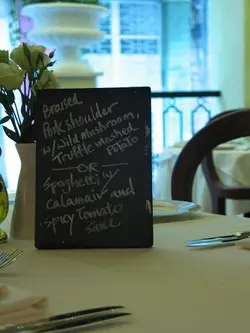 Braised
Pork shoulder
w/ wild mushroom,
Truffle mashed
potato
OR
Spaghetti w/
calamari and
spicy Tomato
sauce